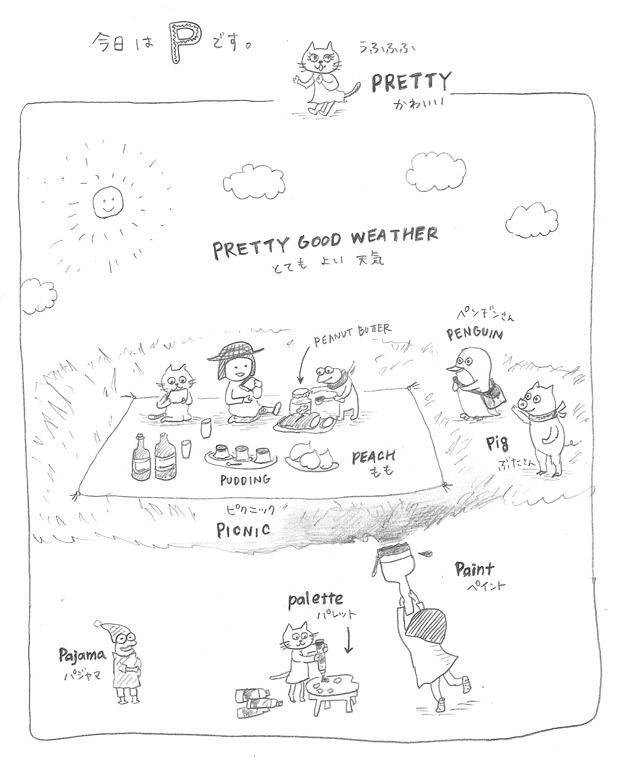 今日は P です。
うふふふ
PRETTY
かわいい
PRETTY GOOD WEATHER
とても よい 天気
PEANUT BUTTER
ペンギンさん
PENGUIN
Pig
ぶたさん
PEACH
もも
PUDDING
ピクニック
PICNIC
Paint
ペイント
palette
パレット
Pajama
パジャマ